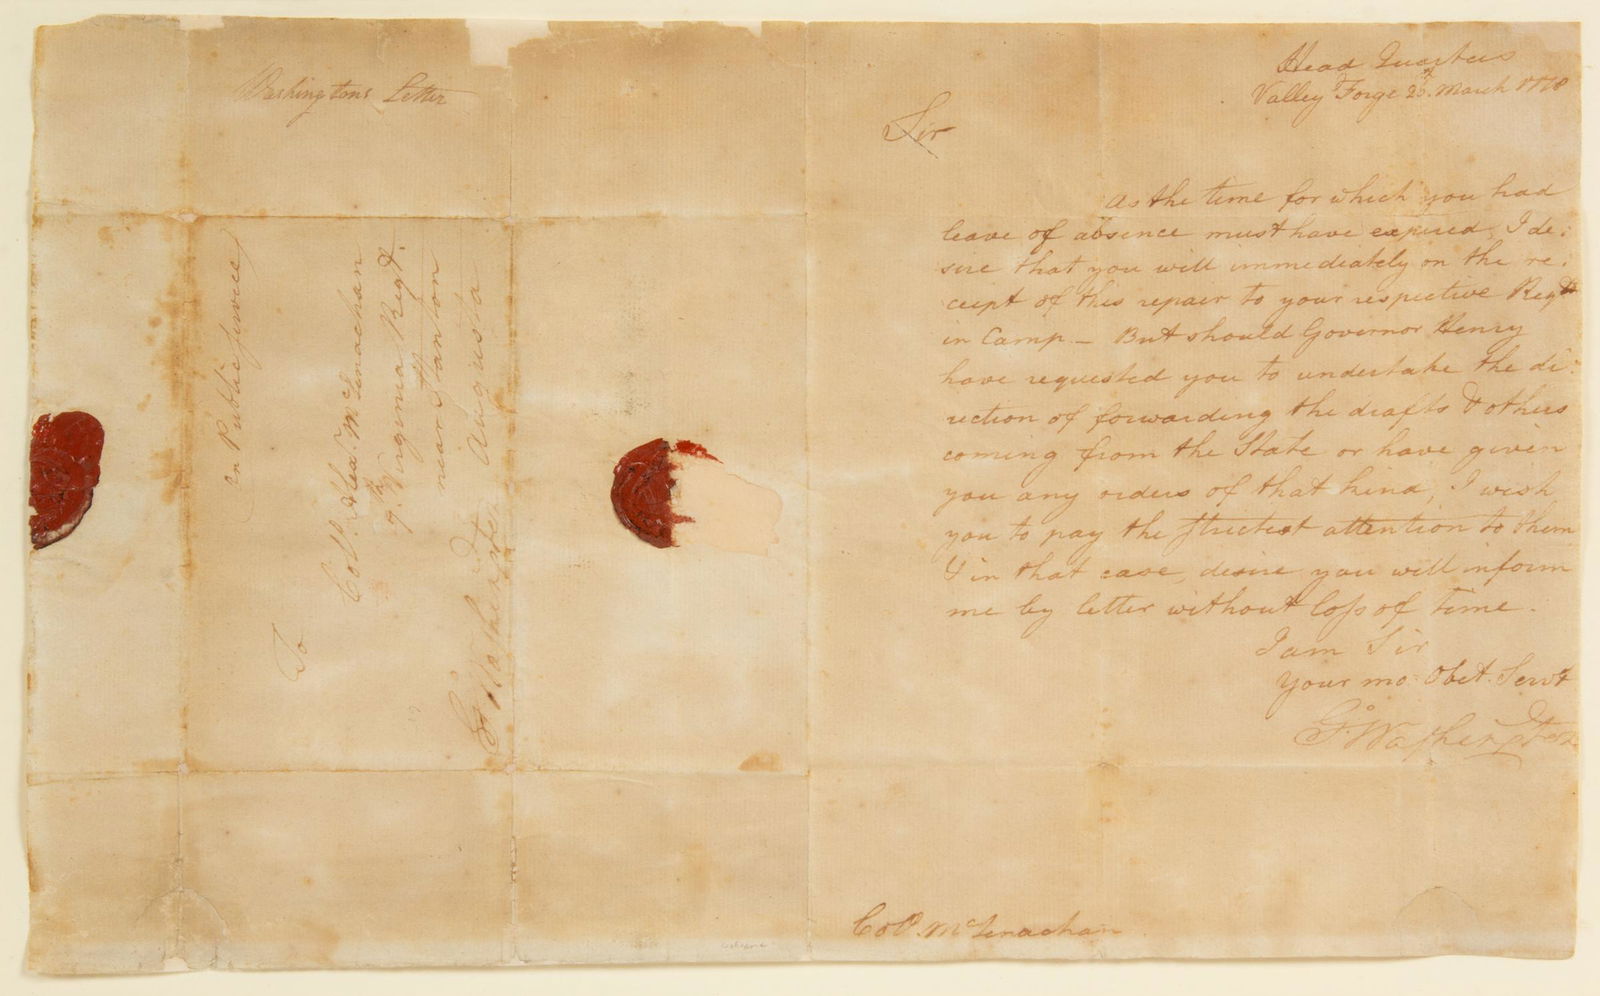 Washingtons Letter
in Public Service
To
Colo. Alexr. McLenachan
9th Virginia Regt.
near Stanton
Augusta
Go Washington
Head Quarters
Valley Forge 20th March 1778
Sir
As the time for which you had
leave of absence must have expired, I de:
sire that you will immediately on the re:
ceipt of this repair to your respective Regt
in Camp — But should Governor Henry
have requested you to undertake the di:
rection of forwarding the drafts & others
coming from the State or have given
you any orders of that kind, I wish
you to pay the strictest attention to them
& in that case, desire you will inform
me by letter without loss of time.
I am Sir
Your mo. Obet. Servt
Go Washington
Colo. McLenachan